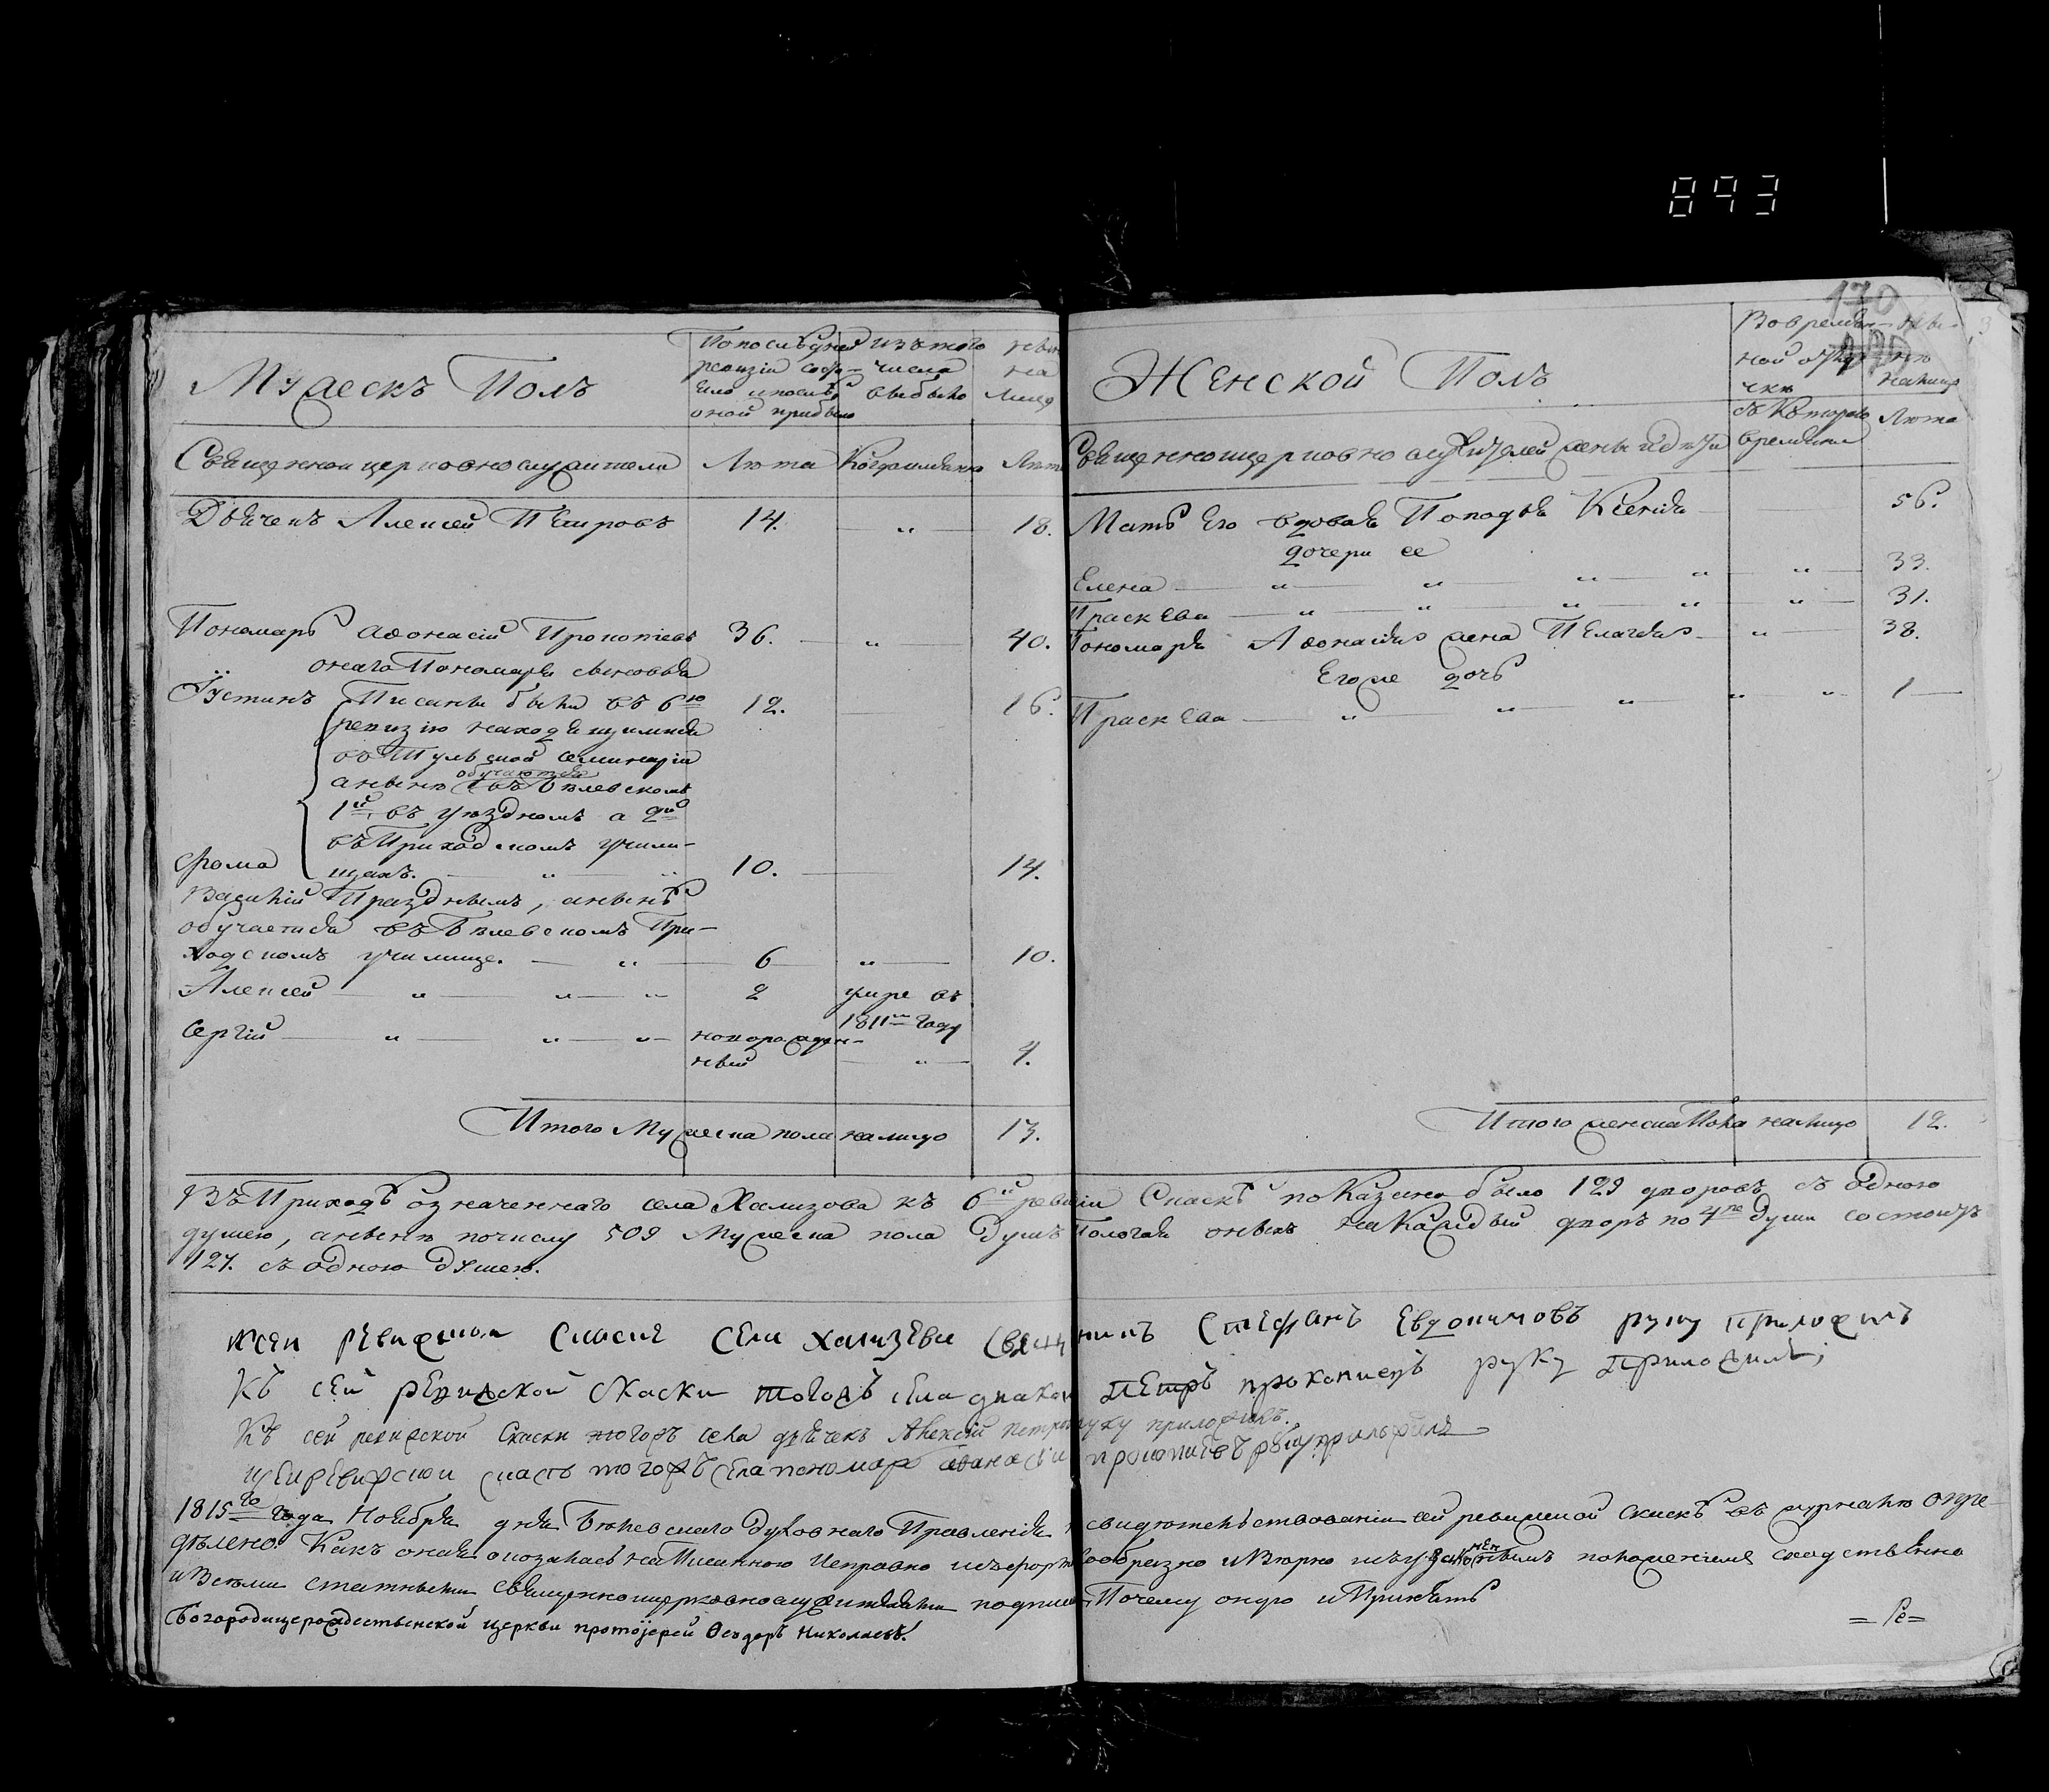 893
170
Мужескъ Полъ
По последней
ревизіи состо-
яло и послѣ
оной прибыло
изъ того
числа
выбыло
нынѣ
на
лицо
Священно и церковнослужители
Лѣта
Когда имянно
Лѣта
Дьячекъ Алексей Петровъ 14. „ 18.
Пономарь Афонасій Прокопіевъ 36. „ 40.
онаго Пономаря сыновья
Іустинъ Писаны были въ 6ю 12. 16.
ревизію находящимися
въ Тульской семинаріи
а нынѣ обучаются въ Бѣлевскомъ
1й въ уѣздномъ а 2й
въ Приходскомъ учили-
Фома щахъ. „ „ 10. 14.
Василій Празднымъ, а нынѣ
обучается въ Бѣлевскомъ При-
ходскомъ училище. „ 6 „ 10.
Алексей „ „ „ 2 умре въ
1811м году
Сергій „ „ „ новорожден-
ный „ 4.
Итого Мужеска пола налицо 13.
Женской Полъ
Во времян-
ной отлуч-
кѣ
съ котораго
времяни
ны-
нѣ
налицо
Лѣта
Священноцерковнослужителей жены и дѣти
Мать Его вдовая Попадья Ксенія 56.
дочери ее
Елена „ „ „ „ „ 33.
Праскева „ „ „ „ „ 31.
Пономаря Афонасія жена Пелагея „ 38.
Его же дочь
Праскева „ „ „ „ „ 1
Итого женска Пола налицо 12.
Въ Приходѣ означеннаго села Хализова къ 6й ревизіи Сказкѣ показано было 129 дворовъ съ одною
душею, а нынѣ по числу 509 Мужеска пола душъ Пологая оныхъ на Каждый дворъ по 4ре души состоитъ
127. съ одною душею.
Ксеи ревижшои сказке села хализева свящ никъ Стефанъ Евдокимовъ руку приложилъ
Къ сей ревизской скаски тогожъ села диакон Петръ прокопиевъ руку приложилъ;
Къ сей ревизской Скаски тогожъ села дьячекъ Алексѣй Петров руку приложилъ.
тогожъ села пономар афанасіи прокопиевъ руку приложилъ
1815го года Ноября дня Бѣлевскаго Духовнаго Правленія свидѣтельствованіи сей ревижской скаскѣ въ журналѣ опре-
дѣлено: Какъ оная оказалась написанною исправно и съ формою образно и вѣрно и съ узаконеннымъ положеніемъ сходственно
и Всѣми статными священноцерковнослужителями подписана Почему оную и Принять
Богородицерождественской церкви протоіерей Ѳеодоръ Николаевъ.